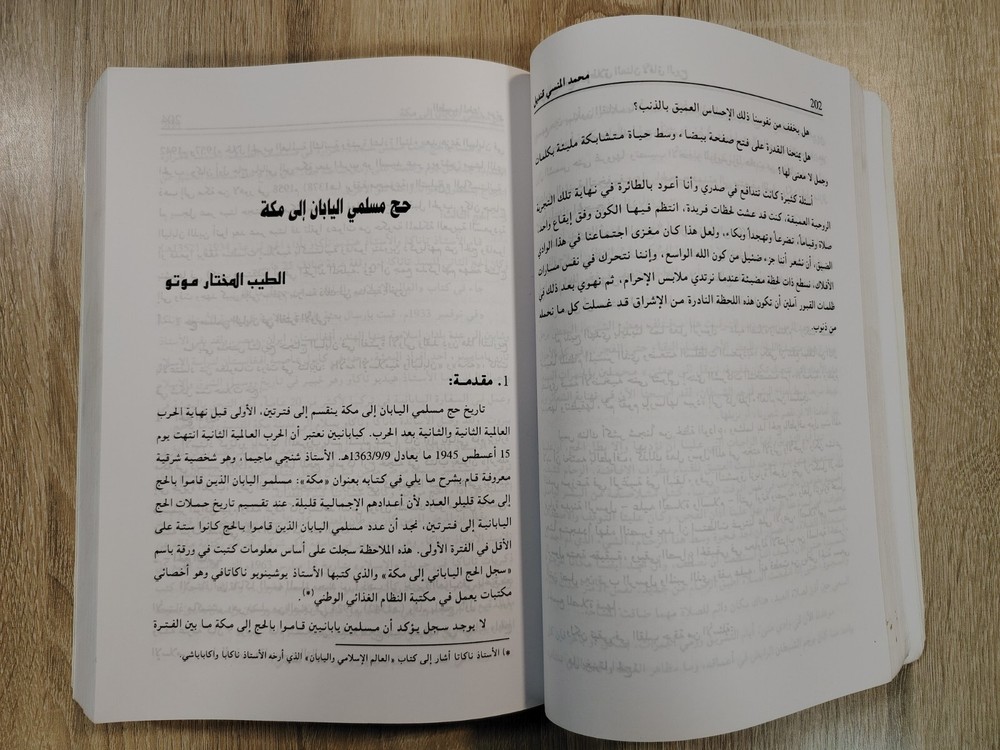 202
محمد المنسي قنديل
هل يخفف من نفوسنا ذلك الإحساس العميق بالذنب؟
هل يمنحنا القدرة على فتح صفحة بيضاء وسط حياة متشابكة مليئة بكلمات
وجمل لا معنى لها؟
أسئلة كثيرة كانت تتدافع في صدري وأنا أعود بالطائرة في نهاية تلك التجربة
الروحية العميقة، كنت قد عشت لحظات فريدة، انتظم فيها الكون وفق إيقاع واحد
صلاة وقياماً، تضرعاً وتهجداً وبكاء، ولعل هذا كان مغزى اجتماعنا في هذا الوادي
الضيق، أن نشعر أننا جزء ضئيل من كون الله الواسع، وإننا نتحرك في نفس مسارات
الأفلاك، نسطع ذات لحظة مضيئة عندما نرتدي ملابس الإحرام، ثم نهوي بعد ذلك في
ظلمات القبور آملين أن تكون هذه اللحظة النادرة من الإشراق قد غسلت كل ما نحمله
من ذنوب.
حج مسلمي اليابان إلى مكة
الطيب المختار موتو
1. مقدمة:
تاريخ حج مسلمي اليابان إلى مكة ينقسم إلى فترتين، الأولى قبل نهاية الحرب
العالمية الثانية والثانية بعد الحرب. كيابانيين نعتبر أن الحرب العالمية الثانية انتهت يوم
15 أغسطس 1945 ما يعادل 1363/9/9هـ. الأستاذ شنجي ماجيما، وهو شخصية شرقية
معروفة قام بشرح ما يلي في كتابه بعنوان «مكة»: مسلمو اليابان الذين قاموا بالحج
إلى مكة قليلو العدد لأن أعدادهم الإجمالية قليلة. عند تقسيم تاريخ حملات الحج
اليابانية إلى فترتين، نجد أن عدد مسلمي اليابان الذين قاموا بالحج كانوا ستة على
الأقل في الفترة الأولى. هذه الملاحظة سجلت على أساس معلومات كتبت في ورقة باسم
«سجل الحج الياباني إلى مكة» والذي كتبها الأستاذ يوشينويو ناكاتافي وهو أخصائي
مكتبات يعمل في مكتبة النظام الغذائي الوطني(*).
لا يوجد سجل يؤكد أن مسلمين يابانيين قاموا بالحج إلى مكة ما بين الفترة
*) الأستاذ ناكاتا أشار إلى كتاب «العالم الإسلامي واليابان» الذي أرخه الأستاذ ناكابا واكاباباشي.